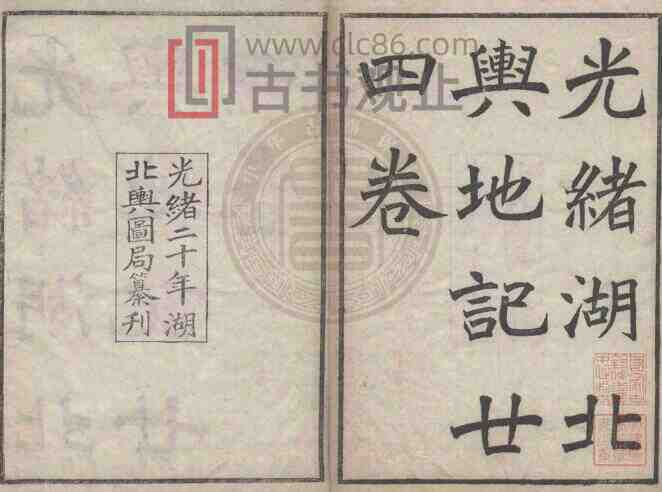 光緒湖北
輿地記廿
四卷
光緒二十年湖
北輿圖局纂刊
www.dlc86.com
古书观止